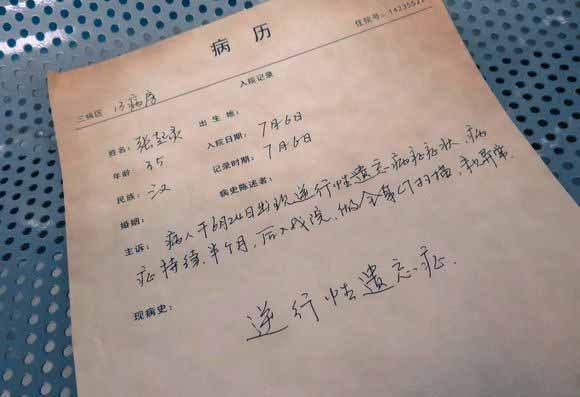 病 历
住院号：14235522
三病区 13病房
入院记录
姓名：张起灵 出 生 地：
年龄 35 入院日期：7月6日
民族：汉 记录时期：7月6日
婚姻： 病史陈述者：
主诉：病人于6月24日出现逆行性遗忘病症症状，病
症持续半个月，后入我院，做全身CT扫描，无异常。
现病史：
逆行性遗忘症.